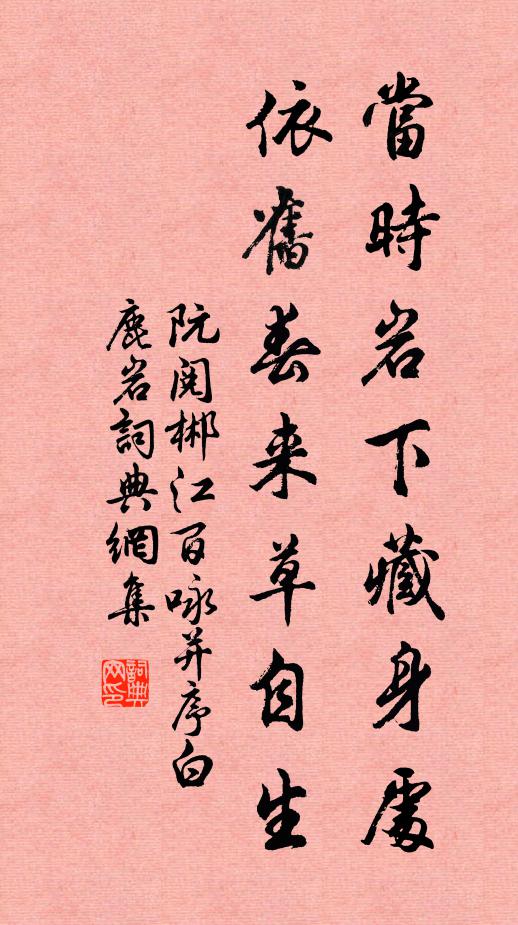 當時岩下藏身處
依舊春来草自生
阮閱郴江百咏并序白
鹿岩詞典網集
詞典网印